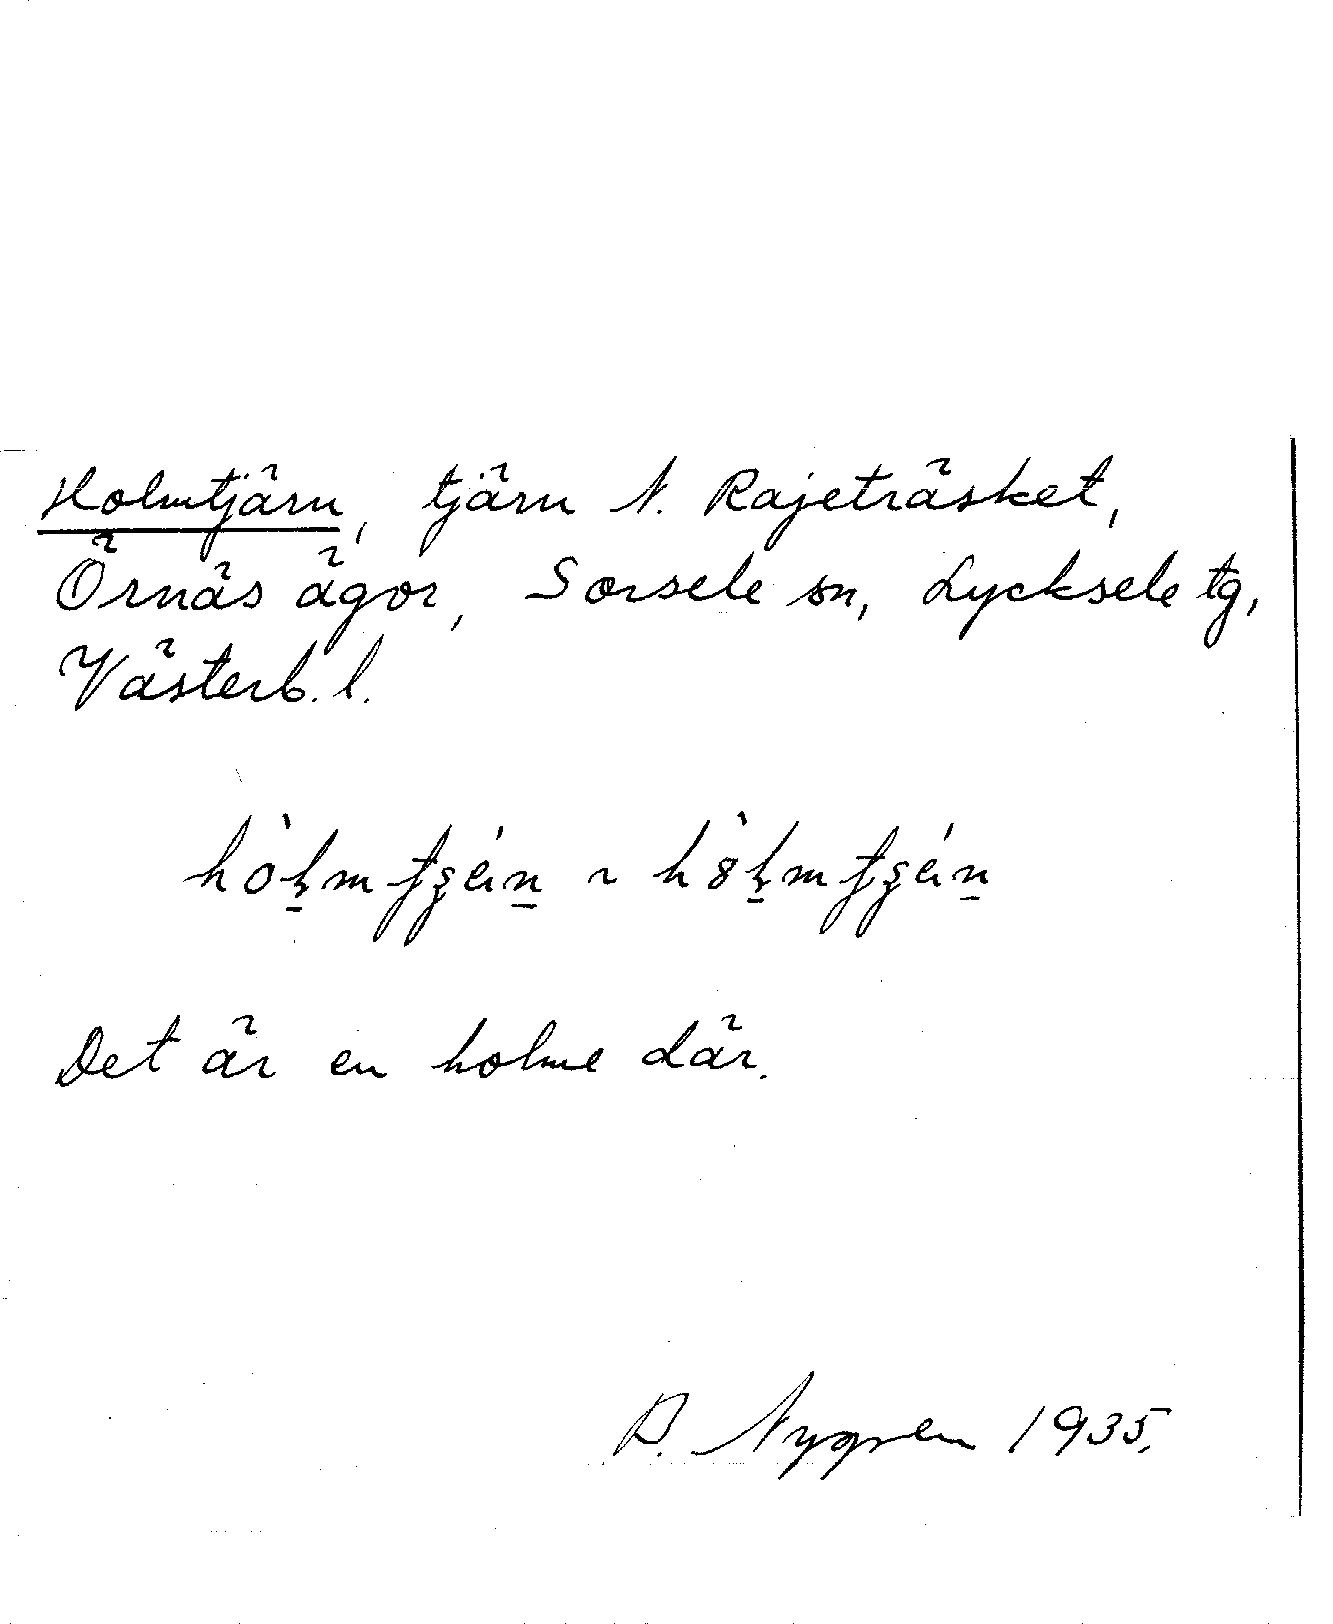 Holmtjärn, tjärn N. Rajeträsket,
Örnäs ägor, Sorsele sn, Lycksele tg,
Västerb. l.
Det är en holme där.
Nygren 1935.